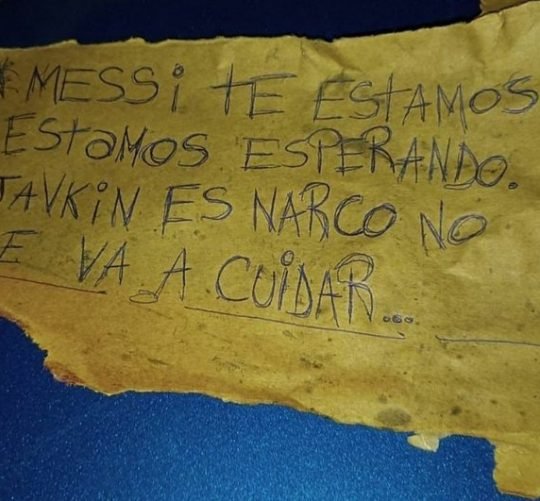 MESSi TE ESTAMOS
ESTAMOS ESPERANDO.
JAVKiN ES NARCO NO
E VA A CUiDAR...